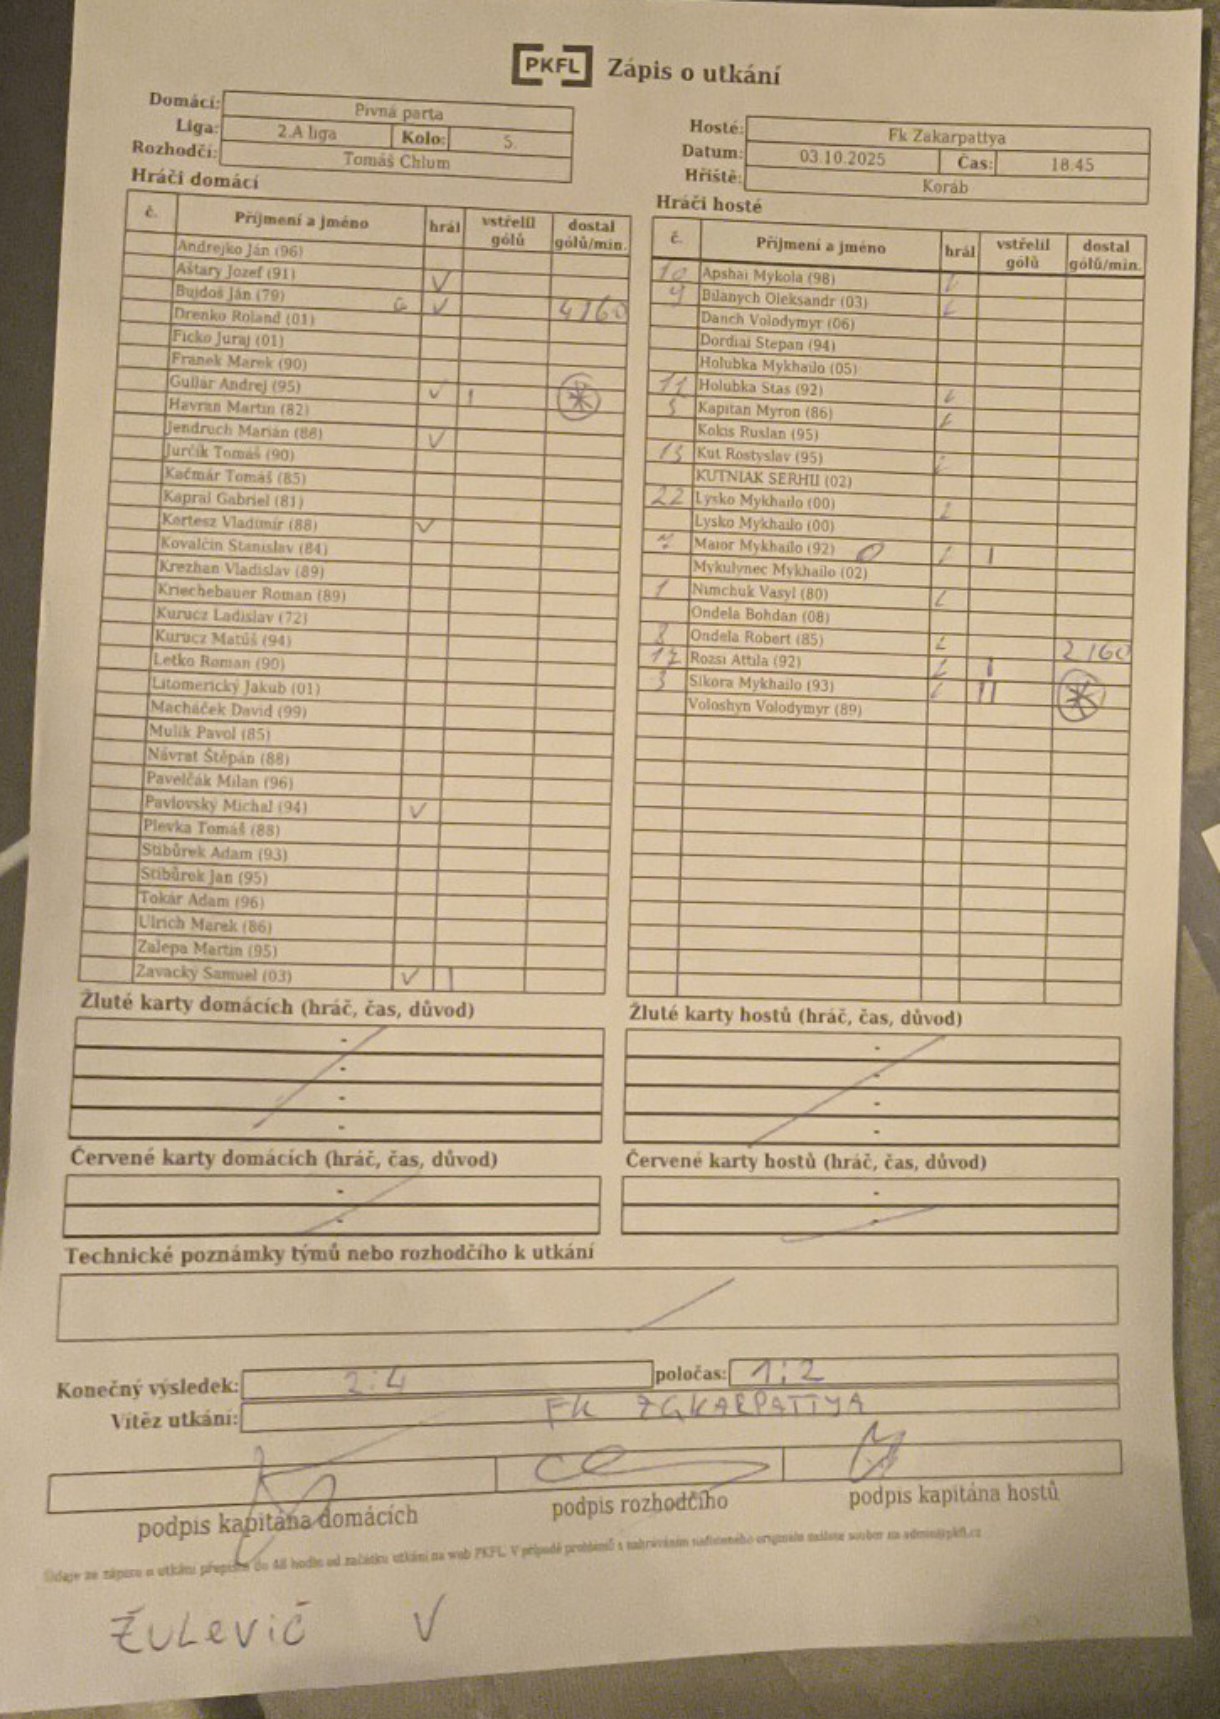 PKFL Zápis o utkání
Domácí: Pivná parta
Liga: 2.A liga Kolo: 5.
Rozhodčí: Tomáš Chlum
Hosté: Fk Zakarpattya
Datum: 03.10.2025 Čas: 18:45
Hřiště: Koráb
Hráči domácí
č. Příjmení a jméno hrál vstřelil gólů dostal gólů/min.
Andrejko Ján (96)
Aštary Jozef (91) V
Bujdoš Ján (79) G V 4/60
Drenko Roland (01)
Ficko Juraj (01)
Franek Marek (90)
Gullár Andrej (95) V I *
Havran Martin (82)
Jendruch Marián (88) V
Jurčík Tomáš (90)
Kačmár Tomáš (85)
Kapral Gabriel (81)
Kertesz Vladimír (88) V
Kovalčin Stanislav (84)
Krezhan Vladislav (89)
Kriechebauer Roman (89)
Kurucz Ladislav (72)
Kurucz Matúš (94)
Letko Roman (90)
Litomerický Jakub (01)
Macháček David (99)
Mulik Pavol (85)
Návrat Štěpán (88)
Pavelčák Milan (96)
Pavlovský Michal (94) V
Plevka Tomáš (88)
Stibůrek Adam (93)
Stibůrek Jan (95)
Tokár Adam (96)
Ulrich Marek (86)
Zalepa Martin (95)
Zavacký Samuel (03) V I
Hráči hosté
č. Příjmení a jméno hrál vstřelil gólů dostal gólů/min.
10 Apshai Mykola (98)
9 Bilanych Oleksandr (03)
Danch Volodymyr (06)
Dordiai Stepan (94)
Holubka Mykhailo (05)
11 Holubka Stas (92)
5 Kapitan Myron (86)
Kokis Ruslan (95)
13 Kut Rostyslav (95)
KUTNIAK SERHII (02)
22 Lysko Mykhailo (00)
Lysko Mykhailo (00)
Maior Mykhailo (92) I
Mykulynec Mykhailo (02)
1 Nimchuk Vasyl (80)
Ondela Bohdan (08)
8 Ondela Robert (85) 2/60
17 Rozsi Attila (92) I
3 Sikora Mykhailo (93) II *
Voloshyn Volodymyr (89)
Žluté karty domácích (hráč, čas, důvod)
-
-
-
-
Žluté karty hostů (hráč, čas, důvod)
-
-
-
-
Červené karty domácích (hráč, čas, důvod)
-
-
Červené karty hostů (hráč, čas, důvod)
-
-
Technické poznámky týmů nebo rozhodčího k utkání
Konečný výsledek: 2:4 poločas: 1:2
Vítěz utkání: FK ZAKARPATTYA
podpis kapitána domácích podpis rozhodčího podpis kapitána hostů
Údaje ze zápisu o utkání přepište do 48 hodin od začátku utkání na web PKFL. V případě problémů s nahráváním nafoceného originálu zašlete soubor na admin@pkfl.cz
ŽULEVIČ V